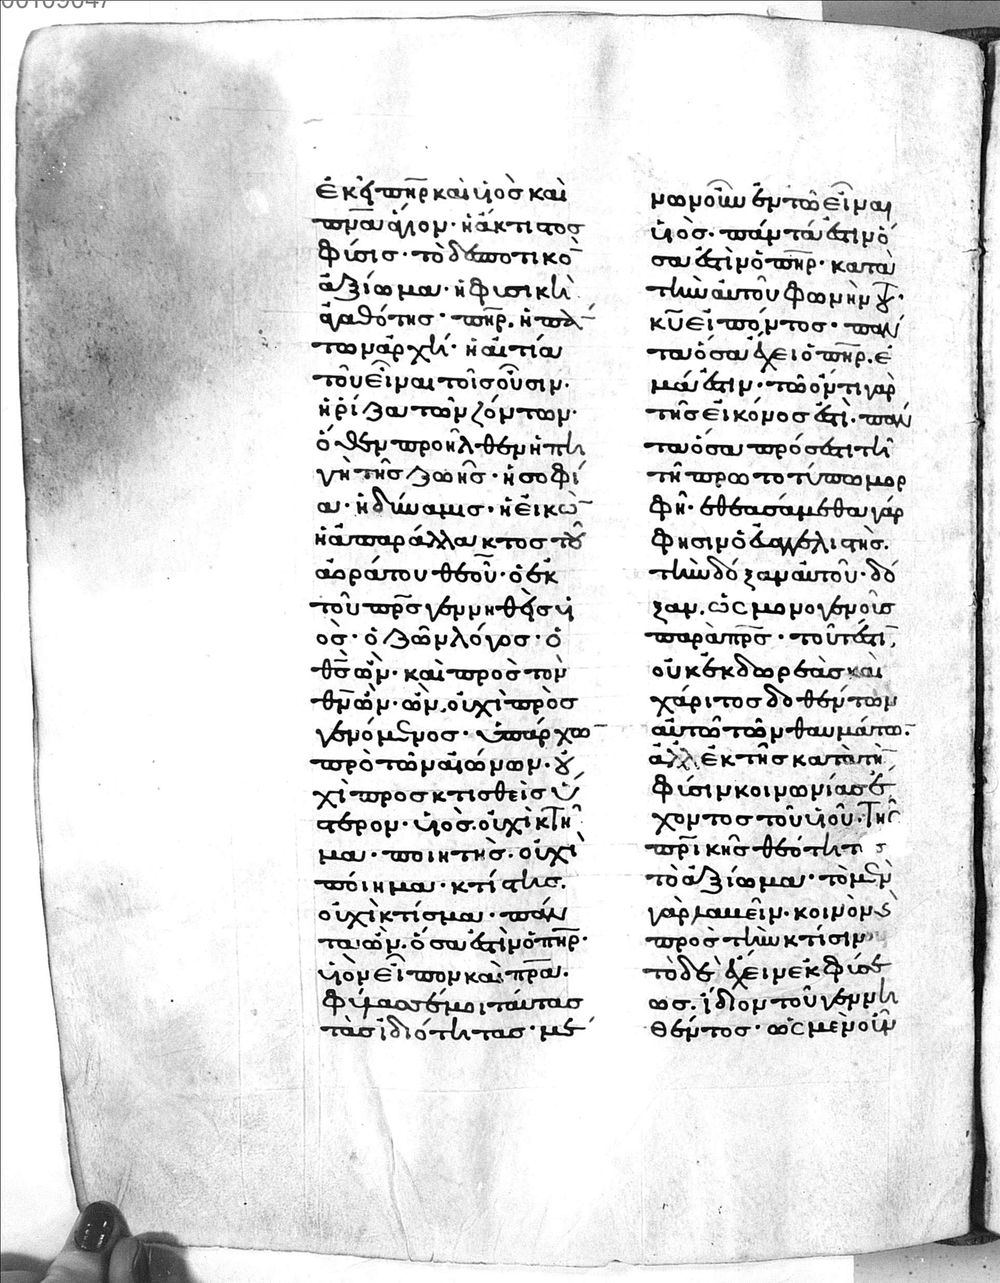 ἐκεῖ πηρ καὶ υἱὸς καὶ
πνα ἅγιον· ἡ ἄκτιστος
φύσις· τὸ δεσποτικὸ
ἀξίωμα· ἡ φυσικὴ
ἀγαθότης· πηρ. ἡ πάν
των ἀρχή· ἡ αἰτία
τοῦ εἶναι τοῖς οὖσιν·
ἡ ρίζα τῶν ζόντων·
ὅθεν προῆλθεν ἡ πη
γὴ τῆς ζωῆς· ἡ σοφί
α· ἡ δύναμις· ἡ εἰκὼ
ἡ ἀπαράλλακτος τοῦ
ἀοράτου θεοῦ· ὁ ἐκ
τοῦ πρς γεννηθεὶς υἱ
ός· ὁ ζῶν λόγος· ὁ
θς ὢν· καὶ πρὸς τὸν
θν ὤν· ὤν. οὐχὶ πρὸς
γενόμενος· ὑπάρχω
πρὸ τῶν αἰώνων· οὐ
χὶ προσκτισθεὶς ὕ
στερον· υἱός. οὐχὶ κτῆ
μα· ποιητής. οὐχὶ
πόιημα· κτίστης.
οὐχὶ κτίσμα· πάν
τα ὢν. ὅσα ἐστὶν ὁ πηρ·
υἱὸν εἶπον καὶ πρα.
φύλασσέ μοι ταύτας
τὰς ἰδιότητας· μέ
νων οὖν ἐν τῶ εἶναι
υἱὸς· πάντά ἐστιν ὅ
σα ἐστὶν ὁ πηρ· κατὰ
τὴν αὐτοῦ φωνὴν τοῦ
κῦ εἰπόντος· πάν
τα ὅσα ἔχει ὁ πηρ. ἐ
μά ἐστιν· τῶ ὄντι γὰρ
τῆς εἰκόνος ἐστὶ. πάν
τα ὅσα πρόσεστι τῆ
τῆ πρωτοτύπω μορ
φῆ· ἐθεασάμεθα γάρ
φησιν ὁ εὐαγγελιστής.
τὴν δόξαν αὐτοῦ· δό
ξαν. ὡς μονογενοῦς
παρὰ πρς· τουτέστι,
οὐκ ἐκ δωρεὰς καὶ
χάριτος δοθέντων
αὐτῶ τῶν θαυμάτω·
ἀλλ ἐκ τῆς κατὰ τὴ
φύσιν κοινωνίας ἔ
χοντος τοῦ υἱοῦ· τῆς
πρικῆς θεότητος
τὸ ἀξίωμα· τὸ μὲν
γὰρ λαβεῖν. κοινὸν
πρὸς τὴν κτίσιν
τὸ δὲ ἔχειν ἐκ φύσε
ως. ἴδιον τοῦ γεννη
θέντος· ὡς μὲν οὖν